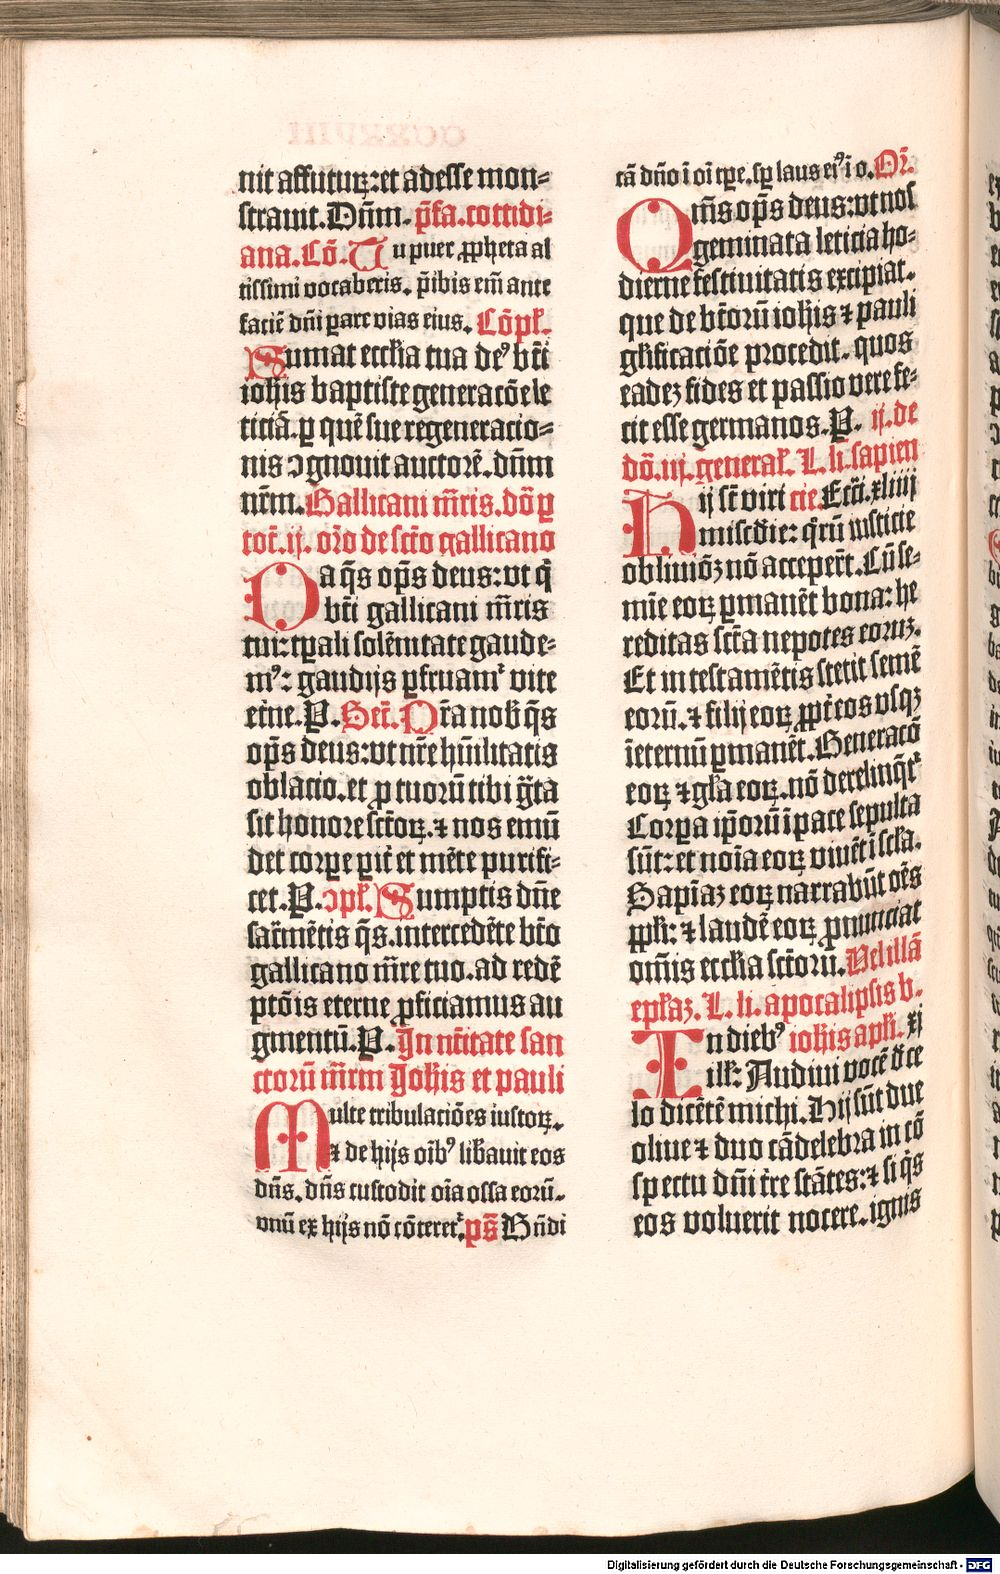 nit affuturꝝ: et adesse mon⸗
strauit. Dn̄m. p̄fa. cottidi⸗
ana. Cō. Tu puer ꝓpheta al
tissimi vocaberis. p̄ibis em̄ ante
faciē dn̄i parare vias eius. Cōpl̄.
Sumat eccl̄ia tua deꝰ bt̄i
ioh̄is baptiste generacōe le
ticiā. ꝑ quē sue regeneracio⸗
nis ɔgnouit auctorē. dn̄m
nr̄m. Gallicani m̄ris. dō ꝑ
tot̄. ij. or̄o de sc̄to gallicano
Da q̄s op̄s deus: vt q̄
bt̄i gallicani m̄ris
tui: tꝑali solēnitate gaude⸗
mꝰ: gaudijs ꝑfruamr̄ vite
et̄ne. P. Secr̄. Pr̄a nob̄ q̄s
op̄s deus: vt nr̄e hūilitatis
oblacio. et ꝓ tuorū tibi gr̄ta
sit honore sc̄toꝝ. ⁊ nos emū
det corꝑe pit̄ et mēte purifi⸗
cet. P. ɔpl̄. Sumptis dn̄e
sacr̄mētis q̄s. intercedēte bt̄o
gallicano m̄re tuo. ad redē
ptōis eterne ꝓficiamus au
gmentū. P. In nr̄itate san
ctorū m̄rm Joh̄is et pauli
Multe tribulaciōes iustoꝝ.
⁊ de hijs oībꝰ lib̄auit eos
dn̄s. dn̄s custodit oīa ossa eorū.
vnū ex hijs nō cōteretr̄. ps̄ Bn̄di
cā dn̄o ī oī tꝑe. sꝑ laus eiꝰ ī o. Or̄.
Qm̄s op̄s deus: vt nos
geminata leticia ho⸗
dierne festiuitatis excipiat.
que de bt̄orū ioh̄is ⁊ pauli
gl̄ificaciōe procedit. quos
eadeꝫ fides et passio vere fe⸗
cit esse germanos. P. ij. de
dō. iij. general̄. L. li. sapien
Hij st̄ viri cie. Ecc̄i. xliiij
mischdie: q̄rū iusticie
obliuiōꝫ nō accepert̄. Cū se⸗
mīe eoꝝ ꝑmanēt bona: he
reditas sc̄ta nepotes eoruꝫ.
Et in testamētis stetit semē
eorū. ⁊ filij eoꝝ ꝓpt̄ eos vsqꝫ
īeternū ꝑmanēt. Generacō
eoꝝ ⁊ gl̄a eoꝝ. nō derelinq̄tr̄
Corpa ip̄orū ī pace sepulta
sūt: et noīa eoꝝ viuēt ī scl̄a.
Sapīaꝫ eoꝝ narrabūt oēs
ppl̄i: ⁊ laudē eoꝝ ꝓnunciat
om̄is eccl̄ia sc̄torū. Vel illā
epl̄aꝫ. L. li. apocalipsis b.
In diebꝰ ioh̄is apl̄i. xj
ill̄: Audiui vocē d̄ ce
lo dicētē michi. Hij sūt due
oliue ⁊ duo cādelebra in cō
spectu dn̄i tr̄e stātes: ⁊ si q̄s
eos voluerit nocere. ignis
Digitalisierung gefördert durch die Deutsche Forschungsgemeinschaft - DFG